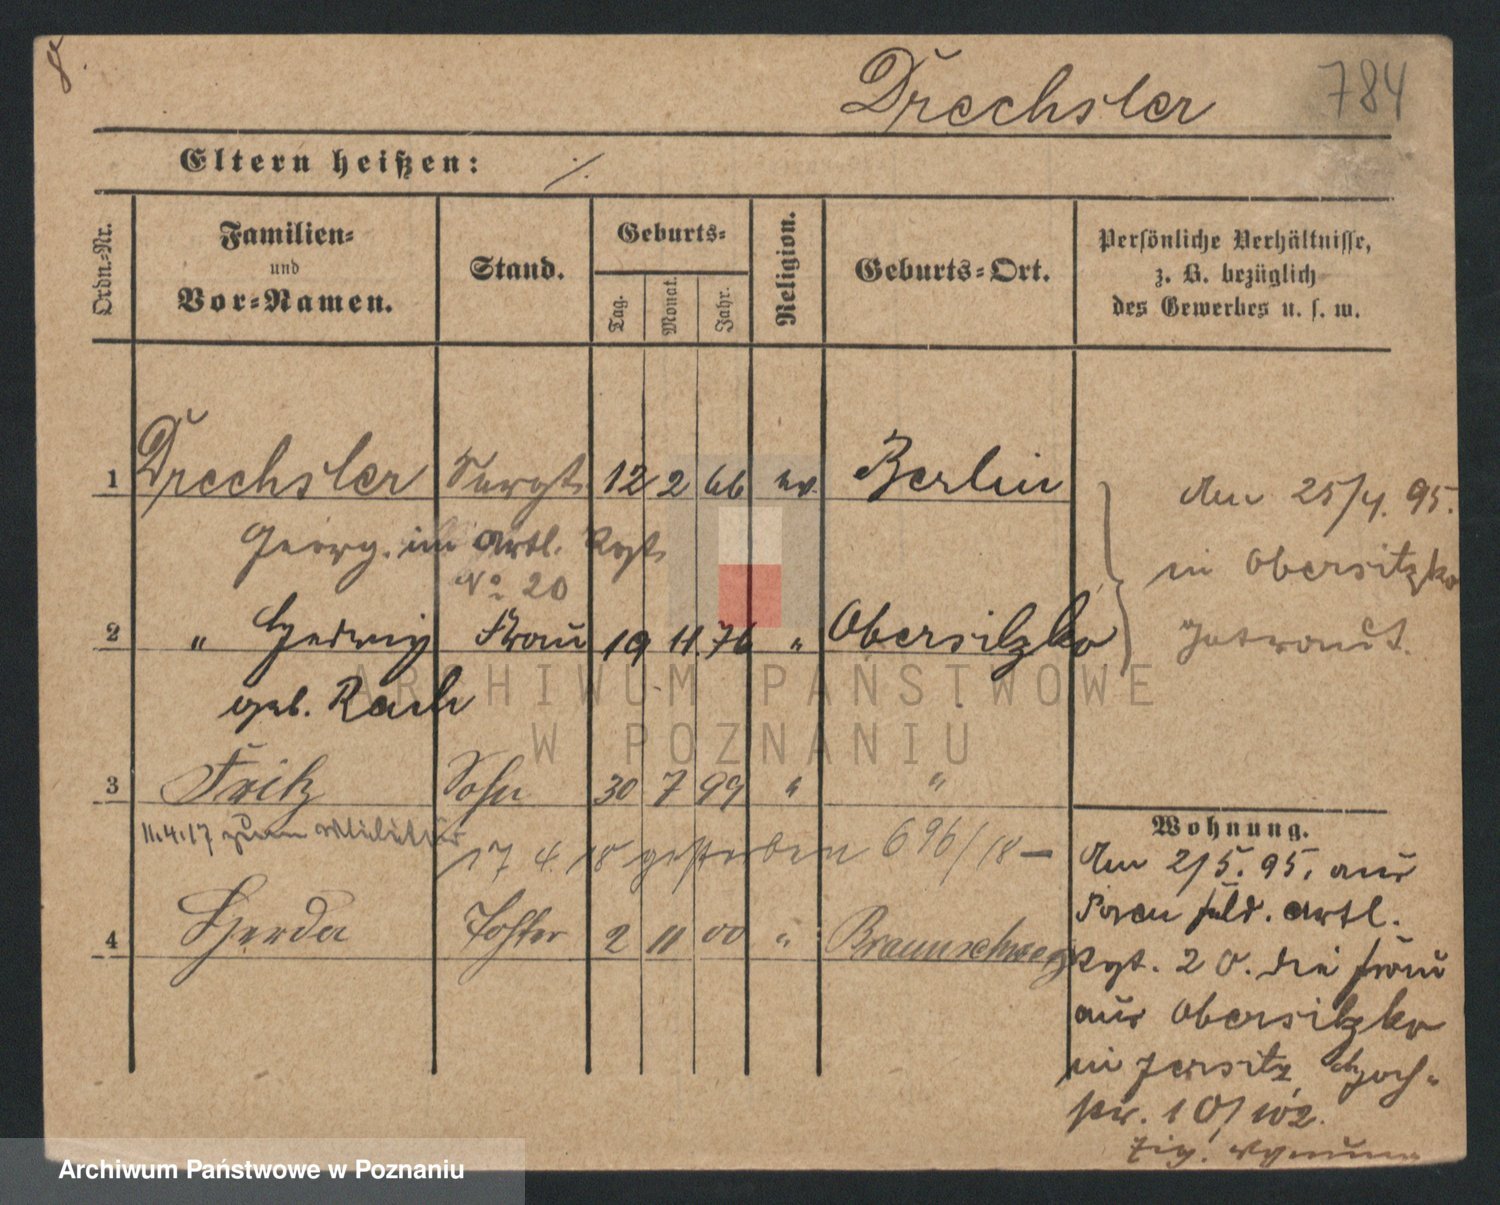 8.
Drechsler 784
Eltern heißen: ∕.
Ordn.-Nr.
Familien-
und
Vor-Namen.
Stand.
Geburts-
Tag. Monat. Jahr.
Religion.
Geburts-Ort.
Persönliche Verhältnisse,
z. B. bezüglich
des Gewerbes u. s. w.
1 Drechsler Sergt. 12 2 66 ev. Berlin
Georg. im Artl. Rgt.
No 20
den 25/4. 95.
in Obersitzko
getraut.
2 " Hedwig Frau 19 11. 76 " Obersitzko
geb. Rach
3 Fritz Sohn 30 7 99 " "
11.4.17 zum Militär
17 4. 18 gestorben 696/18 —
4 Gerda Tochter 2 11 00 " Braunschweig
Wohnung.
den 2/5. 95. aus
Posen Feld. Artl.
Rgt. 20. die Frau
aus Obersitzko
in Jersitz,
str. 10/102.
ARCHIWUM PAŃSTWOWE
W POZNANIU
Archiwum Państwowe w Poznaniu